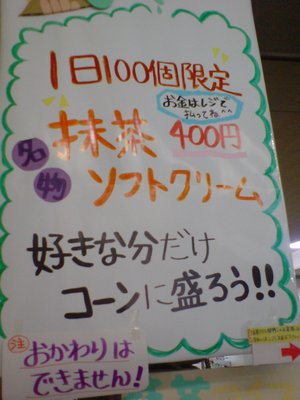 1日100個限定
お金はレジで
払ってね^^
名物
抹茶 400円
ソフトクリーム
好きな分だけ
コーンに盛ろう!!
注 おかわりは
できません!